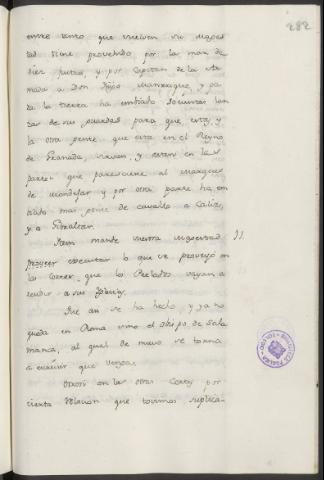 282
entre tanto que vuelven su Mages
tad tiene proveido por la mar de
diez fustas, y por Capitan de la Ar
mada a Don Iñigo Manrrique, y pa
ra la tierra ha embiado docientas lan
zas de sus guardas para que estas, y
la otra gente que esta en el Reyno
de Granada, sirvan, y esten en las
partes que pareciere al Marques
de Mondejar y por otra parte ha em
biado mas gente de cavallo a Caliz,
y a Gibraltar.
Item mande vuestra Magestad
proveer executar lo que se proveyó en
las Cortes, que los Perlados vayan a
residir a sus Iglesias.
Que asi se ha hecho, y ya no
queda en Roma sino el Obispo de Sala
manca, al qual de nuevo se torna
a escribir que venga.
Otrosi en las otras Cortes por
cierta relacion que tovimos suplica-
TOLEDO